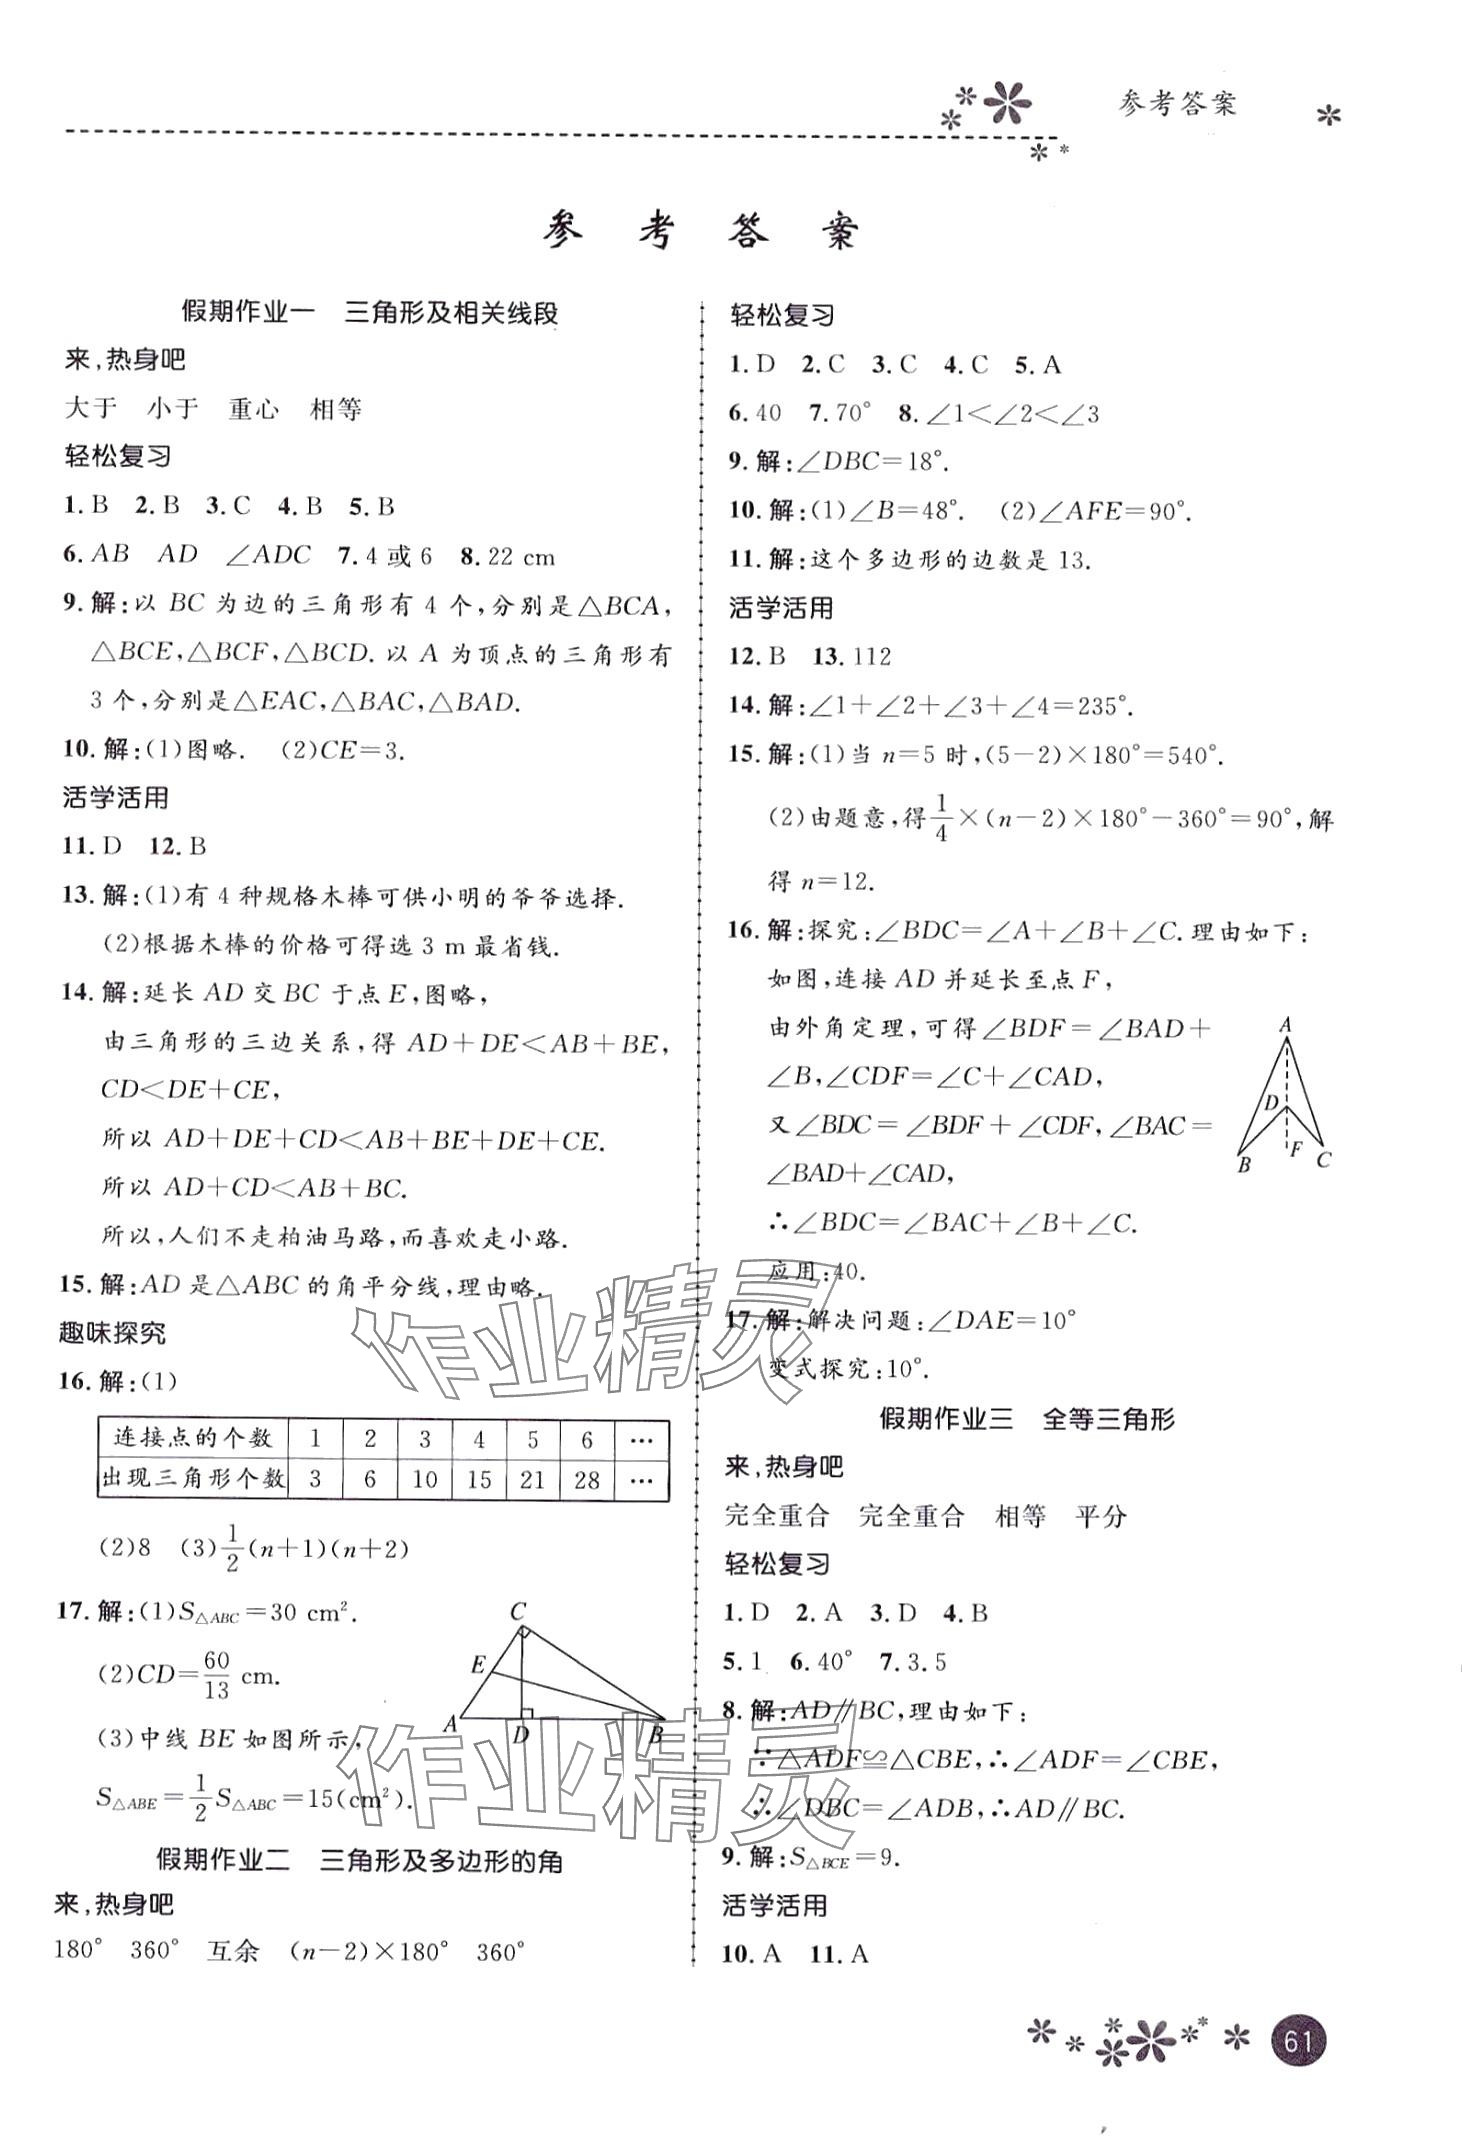 参考答案
参 考 答 案
假期作业一 三角形及相关线段
来,热身吧
大于 小于 重心 相等
轻松复习
1. B 2. B 3. C 4. B 5. B
6. AB AD ∠ADC 7. 4 或 6 8. 22 cm
9. 解:以 BC 为边的三角形有 4 个,分别是△BCA,
△BCE,△BCF,△BCD. 以 A 为顶点的三角形有
3 个,分别是△EAC,△BAC,△BAD.
10. 解:(1)图略. (2)CE=3.
活学活用
11. D 12. B
13. 解:(1)有 4 种规格木棒可供小明的爷爷选择.
(2)根据木棒的价格可得选 3 m 最省钱.
14. 解:延长 AD 交 BC 于点 E,图略,
由三角形的三边关系,得 AD+DE<AB+BE,
CD<DE+CE,
所以 AD+DE+CD<AB+BE+DE+CE.
所以 AD+CD<AB+BC.
所以,人们不走柏油马路,而喜欢走小路.
15. 解:AD 是△ABC 的角平分线,理由略.
趣味探究
16. 解:(1)
连接点的个数 1 2 3 4 5 6 …
出现三角形个数 3 6 10 15 21 28 …
(2)8 (3)1/2(n+1)(n+2)
17. 解:(1)S△ABC=30 cm².
(2)CD=60/13 cm.
(3)中线 BE 如图所示,
S△ABE=1/2S△ABC=15(cm²).
C
E
A D B
假期作业二 三角形及多边形的角
来,热身吧
180° 360° 互余 (n-2)×180° 360°
轻松复习
1. D 2. C 3. C 4. C 5. A
6. 40 7. 70° 8. ∠1<∠2<∠3
9. 解:∠DBC=18°.
10. 解:(1)∠B=48°. (2)∠AFE=90°.
11. 解:这个多边形的边数是 13.
活学活用
12. B 13. 112
14. 解:∠1+∠2+∠3+∠4=235°.
15. 解:(1)当 n=5 时,(5-2)×180°=540°.
(2)由题意,得1/4×(n-2)×180°-360°=90°,解
得 n=12.
16. 解:探究:∠BDC=∠A+∠B+∠C. 理由如下:
如图,连接 AD 并延长至点 F,
由外角定理,可得∠BDF=∠BAD+
∠B,∠CDF=∠C+∠CAD,
又∠BDC=∠BDF+∠CDF,∠BAC=
∠BAD+∠CAD,
∴∠BDC=∠BAC+∠B+∠C.
应用:40.
A
D
B F C
17. 解:解决问题:∠DAE=10°
变式探究:10°.
假期作业三 全等三角形
来,热身吧
完全重合 完全重合 相等 平分
轻松复习
1. D 2. A 3. D 4. B
5. 1 6. 40° 7. 3.5
8. 解:AD∥BC,理由如下:
∵△ADF≌△CBE,∴∠ADF=∠CBE,
∴∠DBC=∠ADB,∴AD∥BC.
9. 解:S△BCE=9.
活学活用
10. A 11. A
作业精灵
作业精灵
61